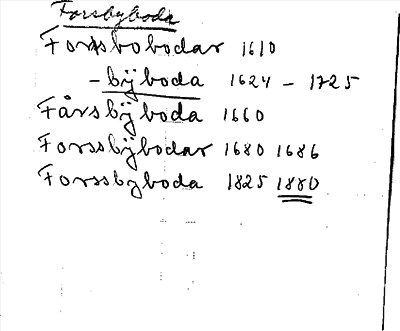 Forsbyboda
Forsbobodar 1610
- bÿboda 1624 - 1725
Fårsbÿboda 1660
Forssbÿbodar 1680 1686
Forssbyboda 1825 1880